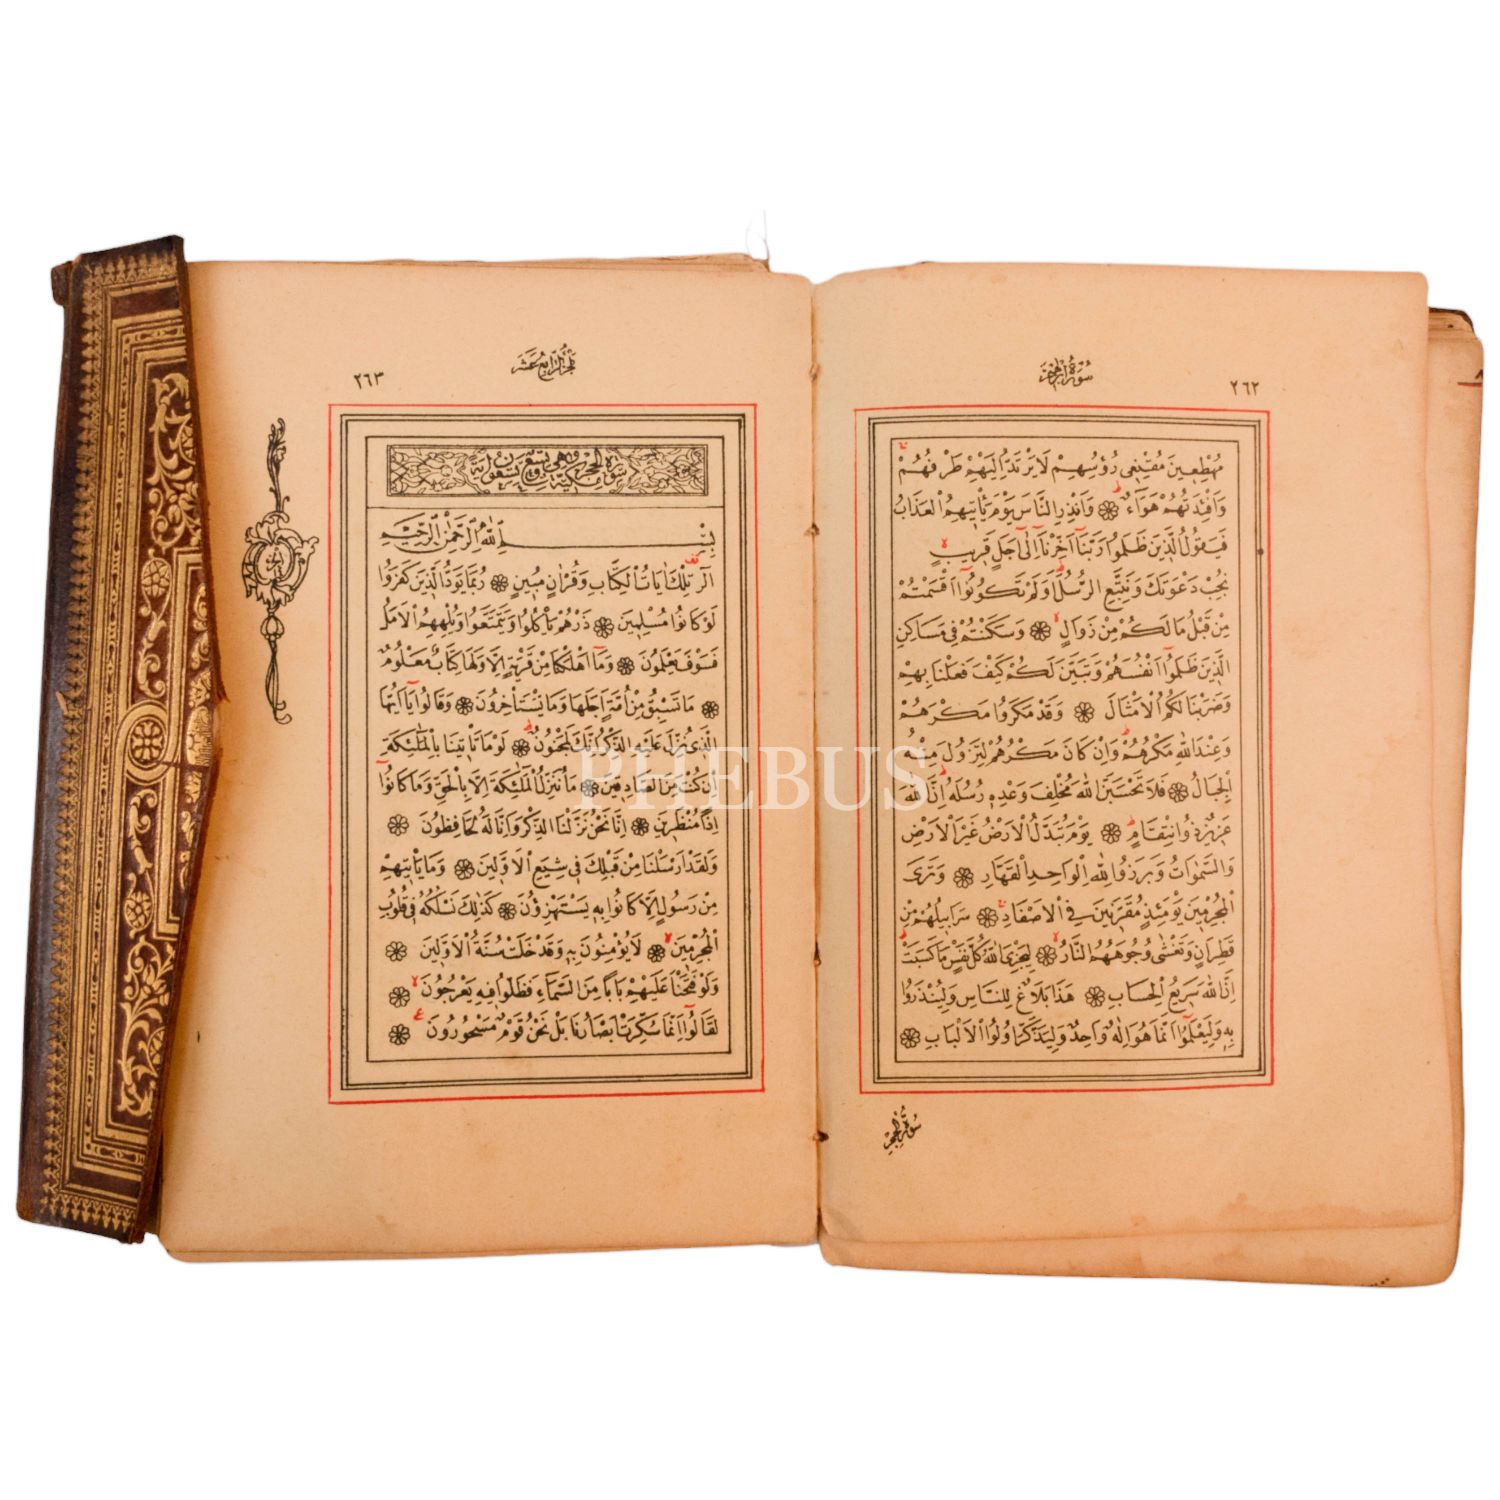 ٢٦٢
سورة ابرهيم
مُهْطِعِينَ مُقْنِعِي رُؤُسِهِمْ لَا يَرْتَدُّ اِلَيْهِمْ طَرْفُهُمْ
وَاَفْئِدَتُهُمْ هَوَاءٌ وَاَنْذِرِ النَّاسَ يَوْمَ يَأْتِيهِمُ الْعَذَابُ
فَيَقُولُ الَّذِينَ ظَلَمُوا رَبَّنَا اَخِّرْنَا اِلٰى اَجَلٍ قَرِيبٍ
نُجِبْ دَعْوَتَكَ وَنَتَّبِعِ الرُّسُلَ اَوَلَمْ تَكُونُوا اَقْسَمْتُمْ
مِنْ قَبْلُ مَا لَكُمْ مِنْ زَوَالٍ وَسَكَنْتُمْ فِي مَسَاكِنِ
الَّذِينَ ظَلَمُوا اَنْفُسَهُمْ وَتَبَيَّنَ لَكُمْ كَيْفَ فَعَلْنَا بِهِمْ
وَضَرَبْنَا لَكُمُ الْاَمْثَالَ وَقَدْ مَكَرُوا مَكْرَهُمْ
وَعِنْدَ اللّٰهِ مَكْرُهُمْ وَاِنْ كَانَ مَكْرُهُمْ لِتَزُولَ مِنْهُ
الْجِبَالُ فَلَا تَحْسَبَنَّ اللّٰهَ مُخْلِفَ وَعْدِهِ رُسُلَهُ اِنَّ اللّٰهَ
عَزِيزٌ ذُو انْتِقَامٍ يَوْمَ تُبَدَّلُ الْاَرْضُ غَيْرَ الْاَرْضِ
وَالسَّمٰوَاتُ وَبَرَزُوا لِلّٰهِ الْوَاحِدِ الْقَهَّارِ وَتَرَى
الْمُجْرِمِينَ يَوْمَئِذٍ مُقَرَّنِينَ فِي الْاَصْفَادِ سَرَابِيلُهُمْ مِنْ
قَطِرَانٍ وَتَغْشٰى وُجُوهَهُمُ النَّارُ لِيَجْزِيَ اللّٰهُ كُلَّ نَفْسٍ مَا كَسَبَتْ
اِنَّ اللّٰهَ سَرِيعُ الْحِسَابِ هٰذَا بَلَاغٌ لِلنَّاسِ وَلِيُنْذَرُوا
بِهِ وَلِيَعْلَمُوا اَنَّمَا هُوَ اِلٰهٌ وَاحِدٌ وَلِيَذَّكَّرَ اُولُوا الْاَلْبَابِ
سورة الحجر
الجزء الرابع عشر
٢٦٣
سورة الحجر مكية وهي تسع وتسعون اية
بِسْمِ اللّٰهِ الرَّحْمٰنِ الرَّحِيمِ
الٓرٰ تِلْكَ اٰيَاتُ الْكِتَابِ وَقُرْاٰنٍ مُبِينٍ رُبَمَا يَوَدُّ الَّذِينَ كَفَرُوا
لَوْ كَانُوا مُسْلِمِينَ ذَرْهُمْ يَأْكُلُوا وَيَتَمَتَّعُوا وَيُلْهِهِمُ الْاَمَلُ
فَسَوْفَ يَعْلَمُونَ وَمَا اَهْلَكْنَا مِنْ قَرْيَةٍ اِلَّا وَلَهَا كِتَابٌ مَعْلُومٌ
مَا تَسْبِقُ مِنْ اُمَّةٍ اَجَلَهَا وَمَا يَسْتَأْخِرُونَ وَقَالُوا يَا اَيُّهَا
الَّذِي نُزِّلَ عَلَيْهِ الذِّكْرُ اِنَّكَ لَمَجْنُونٌ لَوْ مَا تَأْتِينَا بِالْمَلٰئِكَةِ
اِنْ كُنْتَ مِنَ الصَّادِقِينَ مَا نُنَزِّلُ الْمَلٰئِكَةَ اِلَّا بِالْحَقِّ وَمَا كَانُوا
اِذًا مُنْظَرِينَ اِنَّا نَحْنُ نَزَّلْنَا الذِّكْرَ وَاِنَّا لَهُ لَحَافِظُونَ
وَلَقَدْ اَرْسَلْنَا مِنْ قَبْلِكَ فِي شِيَعِ الْاَوَّلِينَ وَمَا يَأْتِيهِمْ
مِنْ رَسُولٍ اِلَّا كَانُوا بِهِ يَسْتَهْزِؤُنَ كَذٰلِكَ نَسْلُكُهُ فِي قُلُوبِ
الْمُجْرِمِينَ لَا يُؤْمِنُونَ بِهِ وَقَدْ خَلَتْ سُنَّةُ الْاَوَّلِينَ
وَلَوْ فَتَحْنَا عَلَيْهِمْ بَابًا مِنَ السَّمَاءِ فَظَلُّوا فِيهِ يَعْرُجُونَ
لَقَالُوا اِنَّمَا سُكِّرَتْ اَبْصَارُنَا بَلْ نَحْنُ قَوْمٌ مَسْحُورُونَ
PHEBUS